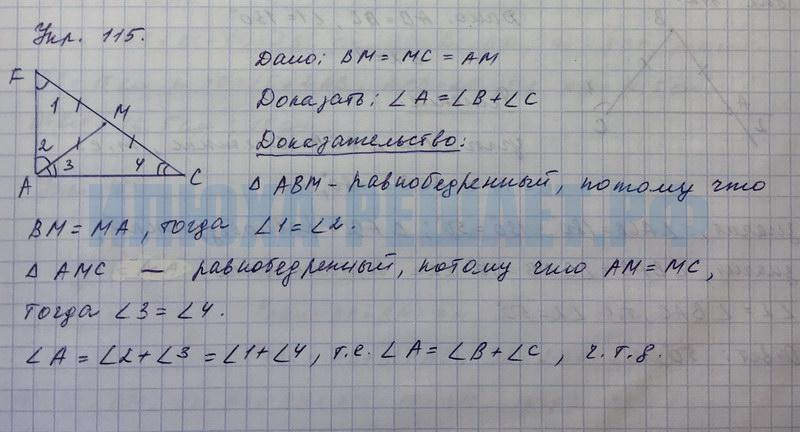 Упр. 115.
Дано: BM = MC = AM
Доказать: ∠A = ∠B + ∠C
Доказательство:
∆ ABM – равнобедренный, потому что
BM = MA, тогда ∠1 = ∠2.
∆ AMC — равнобедренный, потому что AM = MC,
тогда ∠3 = ∠4.
∠A = ∠2 + ∠3 = ∠1 + ∠4, т.е. ∠A = ∠B + ∠C, ч.т.д.
1
M
2
3
4
A
C